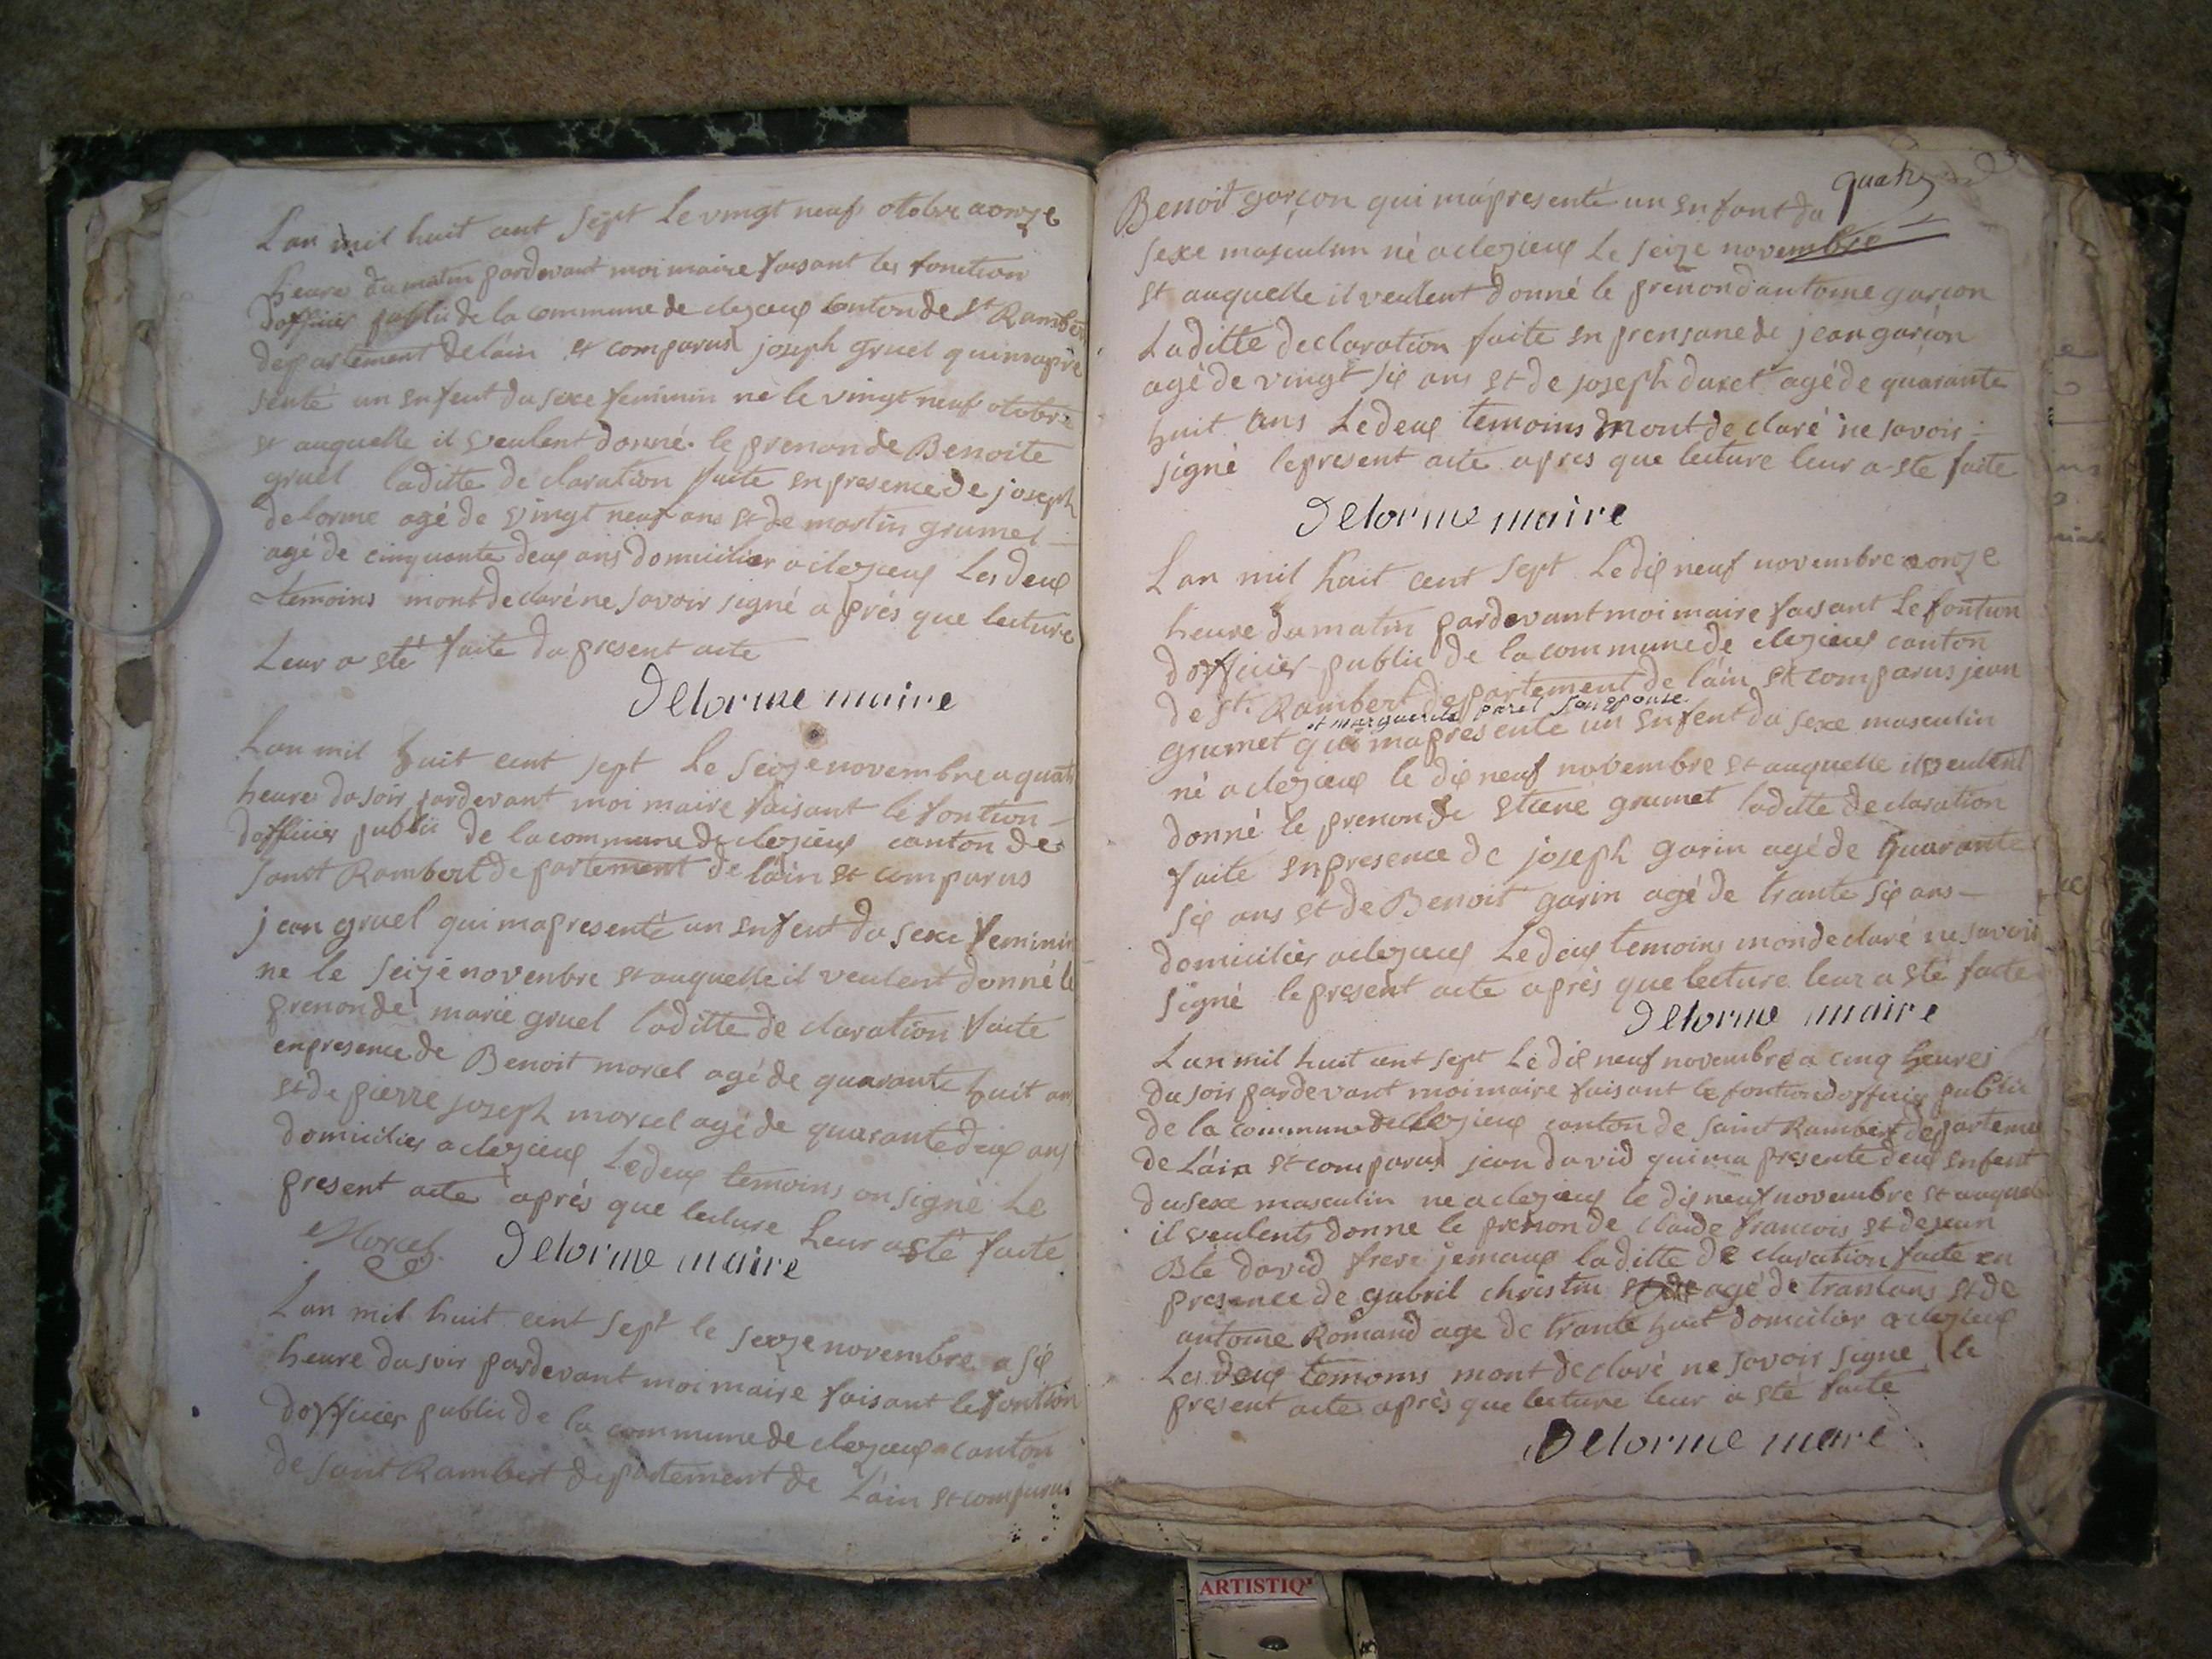 Lan mil huit cent sept le vingt neuf otobre a onze
heures du matin pardevant moi maire faisant les fonction
dofficier public de la commune de clezieux canton de St Rambert
departement de l'ain et comparus joseph gruel qui mapré
senté un enfent du sexe feminin né le vingt neuf otobre
et auquelle il veulent donné le prenon de Benoite
gruel laditte declaration faite en presence de joseph
delorme agé de vingt neuf ans et de martin grumet
agé de cinquante deux ans domicilier a clezieux Les deux
temoins mont declaré ne savoir signé après que lecture
Leur a eté faite du present acte
Delorme maire
Lan mil huit cent sept Le seize novembre a quatre
heures du soir pardevant moi maire faisant le fontion
dofficier public de la commune de clezieux canton de
saint Rambert departement de l'ain et comparus
jean gruel qui mapresenté un enfent du sexe feminin
ne le seize novenbre et auquelle il veulent donné le
prenon de marie gruel laditte declaration faite
en presence de Benoit morcel agé de quarante huit an
et de pierre joseph morcel agé de quarante deux ans
domicilies a clezieux Le deux temoins on signé Le
present acte après que lecture Leur a eté faite
Morcel Delorme maire
Lan mil huit cent sept le seize novembre a six
heure du soir pardevant moi maire faisant le fontion
dofficier public de la commune de clezieux canton
de saint Rambert departement de L'ain et comparus
quatre
Benoit garçon qui mapresenté un enfant du
sexe masculin né a clezieux Le seize novembre
et auquelle il veulent donné le prenon dantoine garçon
Laditte declaration faite en prensane de jean garçon
agé de vingt six ans et de joseph agé de quarante
huit ans Le deux temoins mont declaré ne savoir
signé le present acte apres que lecture leur a ete faite
Delorme maire
Lan mil huit cent sept Le dix neuf novembre a onze
heure du matin pardevant moi maire faisant Le fontion
dofficier public de la commune de clezieux canton
de St. Rambert departement de l'ain et comparus jean
et marguerite son epouse
grumet qui mapresente un enfent du sexe masculin
né a clezieux le dix neuf novembre et auquelle il veulent
donné le prenon de etiene grumet laditte declaration
faite en presence de joseph garin agé de quarante
six ans et de Benoit garin agé de trante six ans
domicilies a clezieux Le deux temoins mon declaré ne savoir
signé le present acte après que lecture leur a eté faite
Delorme maire
Lan mil huit cent sept Le dix neuf novembre a cinq heures
du soir pardevant moi maire faisant le fontion dofficier public
de la commune de clezieux canton de saint Rambert departeme
de L'ain et comparus jean david qui ma presente deux enfent
du sexe masculin ne a clezieux le dix neuf novembre et auquel
il veulent donne le prenon de claude francois et de jean
Bte david frere jemaux laditte declaration faite en
presence de gabril christin agé de trant ans et de
antoine Romand age de trante huit domicilier a clezieux
Les deux temoins mont declaré ne savoir signe le
present acte après que lecture leur a eté faite
Delorme mare
ARTISTIQ